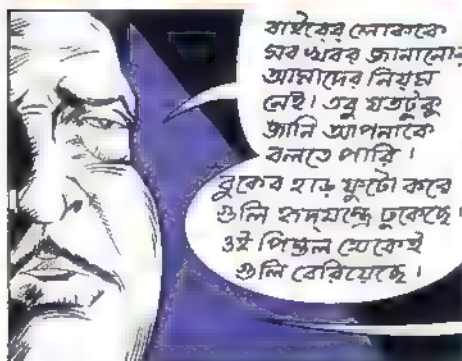 বাইরের লোককে
সব খবর জানানোর
আমাদের নিয়ম
নেই। তবু যতটুকু
জানি আপনাকে
বলতে পারি।
বুকের হাড় ফুটো করে
গুলি হৃদ্‌যন্ত্রে ঢুকেছে।
ওই পিস্তল থেকেই
গুলি বেরিয়েছে।